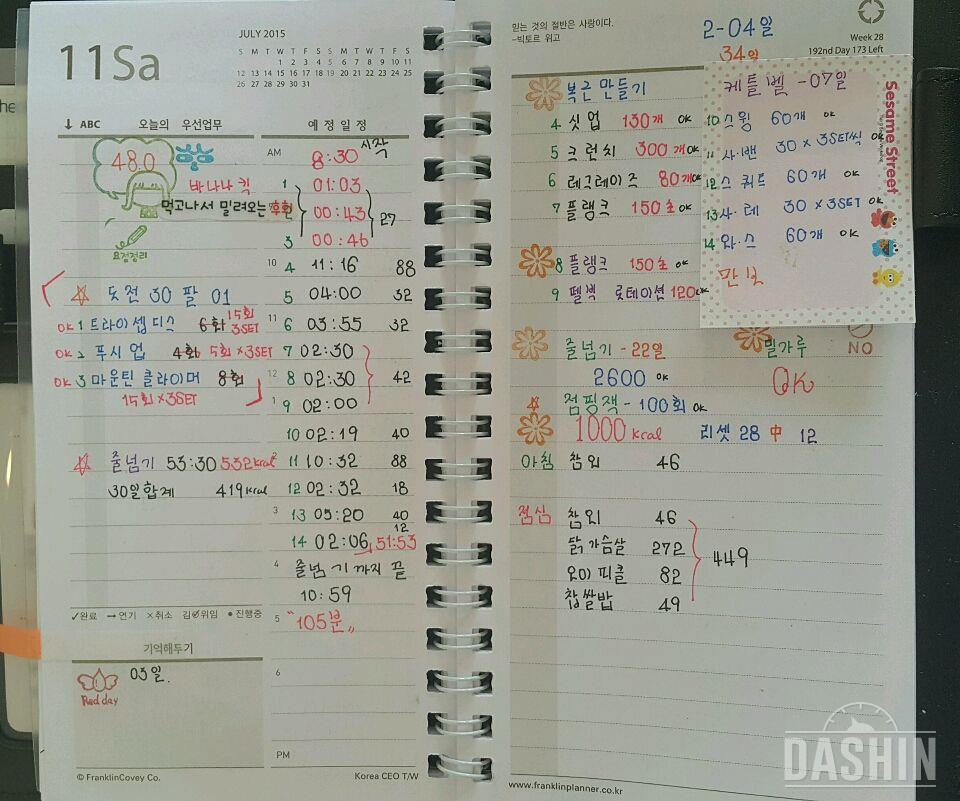 11Sa
JULY 2015
S M T W T F S S M T W T F S
1 2 3 4 5 6 7 8 9 10 11
12 13 14 15 16 17 18 19 20 21 22 23 24 25
26 27 28 29 30 31
↓ ABC 오늘의 우선업무
48.0
바나나 킥
먹고나서 밀려오는 후회
요점정리
도전 30 팔 01
OK 1 트라이셉 디스 6회 15회 3SET
OK 2 푸시 업 4회 5회 ×3SET
OK 3 마운틴 클라이머 8회
15회 ×3SET
줄넘기 53:30 532kcal
30일합계 419kcal
✓완료 →연기 ×취소 김∅위임 •진행중
기억해두기
Red day
03일.
© FranklinCovey Co.
예 정 일 정
AM 8:30 시작
1 01:03
00:43 27
3 00:46
10 4 11:16 88
5 04:00 32
11 6 03:55 32
7 02:30
12 8 02:30 42
1 9 02:00
10 02:19 40
2 11 10:32 88
12 02:32 18
3 13 05:20 40
12
14 02:06, 51:53
4 줄넘기 까지 끝
10:59
5 "105분"
6
PM
Korea CEO T/W
믿는 것의 절반은 사랑이다.
-빅토르 위고
2-04일
34일
Week 28
192nd Day 173 Left
복근 만들기
4 싯업 130개 OK
5 크런치 300개 OK
6 레그레이즈 80개 OK
7 플랭크 150초 OK
8 플랭크 150초 OK
9 펠빅 로테이션 120 OK
줄넘기 - 22일
2600 OK
점핑잭 - 100회 OK
1000 kcal 리셋 28 中 12
밀가루 NO
OK
아침 참외 46
점심 참외 46
닭가슴살 272
오이피클 82
찹쌀밥 49
449
케틀벨 -07일
10 스윙 60개 OK
11 사·밴 30 ×3SET씩 OK
12 스쿼트 60개 OK
13 사·레 30 ×3SET OK
14 와·스 60개 OK
Sesame Street
www.franklinplanner.co.kr
DASHIN